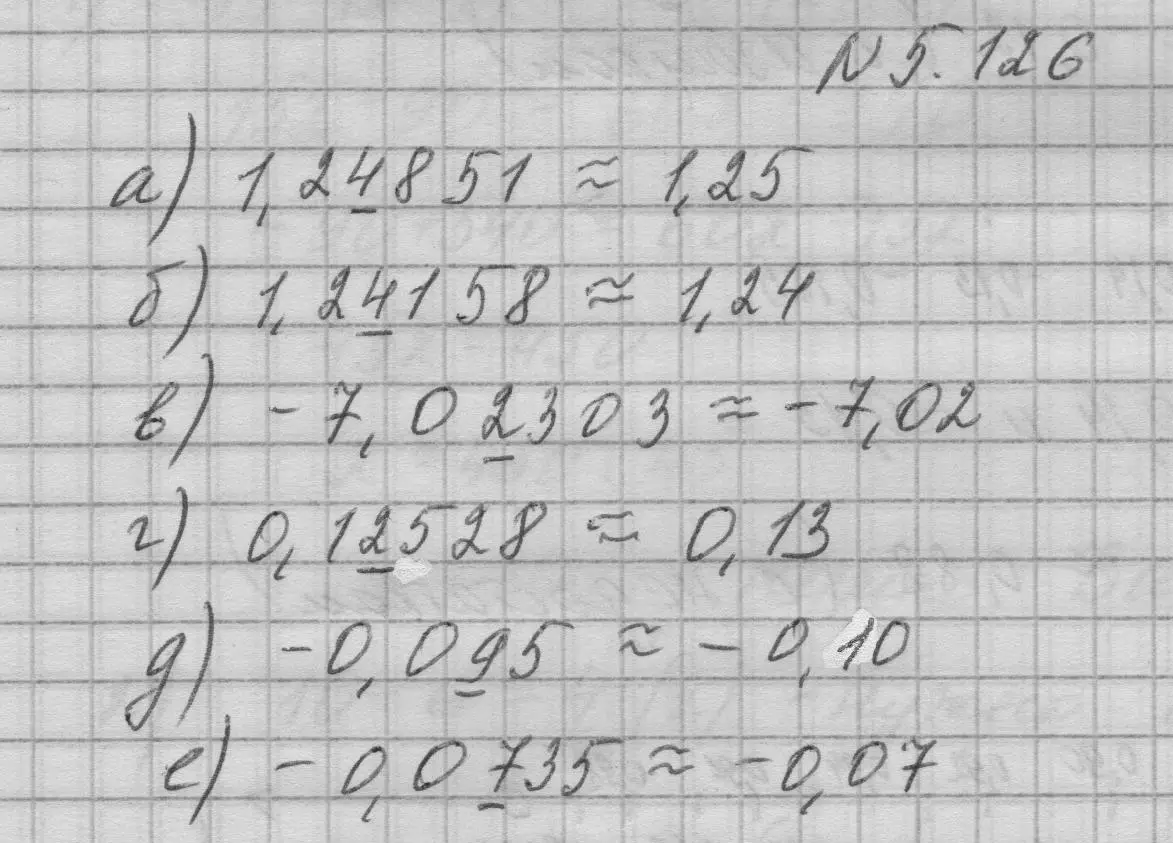 N 5.126
а) 1,24851 ≈ 1,25
б) 1,24158 ≈ 1,24
в) - 7,02303 ≈ - 7,02
г) 0,12528 ≈ 0,13
д) - 0,095 ≈ - 0,10
е) - 0,0735 ≈ - 0,07